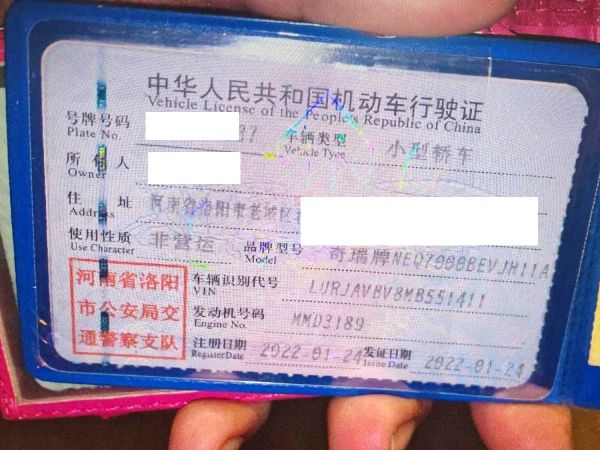 中华人民共和国机动车行驶证
Vehicle License of the People's Republic of China
号牌号码 37 车辆类型 小型轿车
Plate No. Vehicle Type
所有人
Owner
住址 河南省洛阳市老城区
Address
使用性质 非营运 品牌型号 奇瑞牌NEQ7000BEVJH11A
Use Character Model
河南省洛阳
市公安局交
通警察支队
车辆识别代号 LURJAVBV8MB551411
VIN
发动机号码 MMD3189
Engine No.
注册日期 2022-01-24 发证日期 2022-01-24
Register Date Issue Date